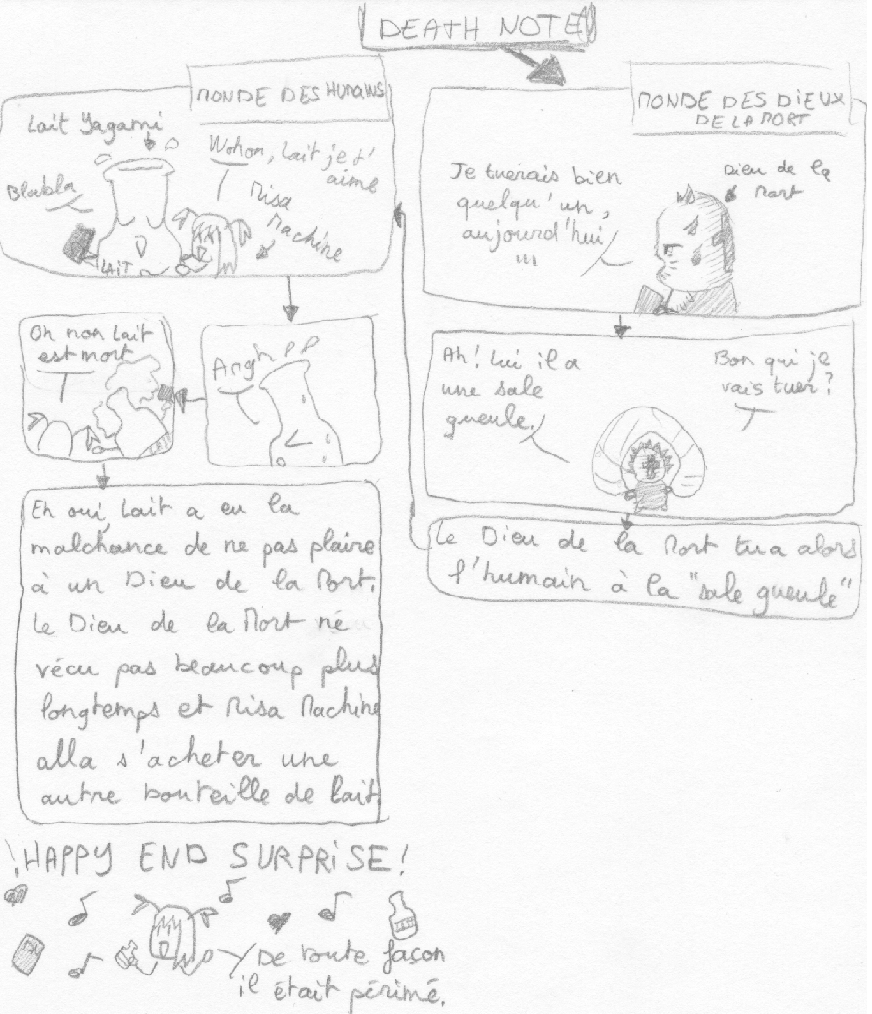 DEATH NOTE
MONDE DES DIEUX
DE LA MORT
Je tuerais bien
quelqu'un,
aujourd'hui
...
Dieu de la
Mort
Ah! Lui il a
une sale
gueule.
Bon qui je
vais tuer?
Le Dieu de la Mort tua alors
l'humain à la "sale gueule"
MONDE DES HUMAINS
Lait Yagami
Blabla
LAIT
Wohon, Lait je t'
aime
Misa
Machine
Argh
Oh non Lait
est mort
Eh oui, Lait a eu la
malchance de ne pas plaire
à un Dieu de la Mort.
Le Dieu de la Mort né
vécu pas beaucoup plus
longtemps et Misa Machine
alla s'acheter une
autre bouteille de lait
!HAPPY END SURPRISE!
De toute façon
il était périmé.